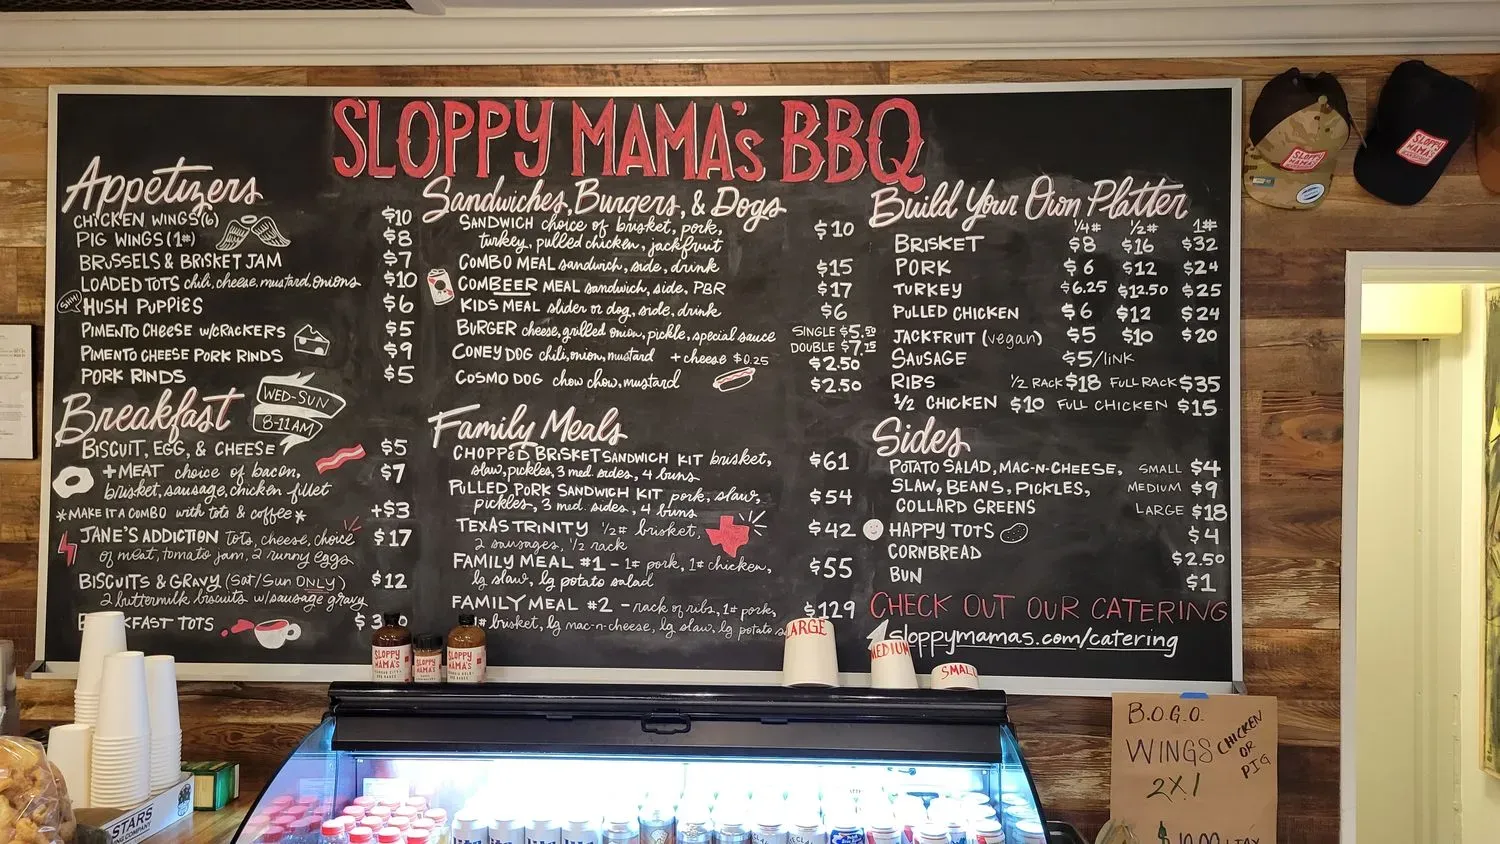 SLOPPY MAMA's BBQ
Appetizers
CHICKEN WINGS (6) $10
PIG WINGS (1#) $8
BRUSSELS & BRISKET JAM $7
LOADED TOTS chili, cheese, mustard, onions $10
SHH! HUSH PUPPIES $6
PIMENTO CHEESE W/CRACKERS $5
PIMENTO CHEESE PORK RINDS $9
PORK RINDS $5
Breakfast
WED-SUN
8-11AM
BISCUIT, EGG, & CHEESE $5
+MEAT choice of bacon, $7
brisket, sausage, chicken fillet
*MAKE IT A COMBO with tots & coffee* +$3
JANE'S ADDICTION tots, cheese, choice $17
of meat, tomato jam, 2 runny eggs
BISCUITS & GRAVY (Sat/Sun ONLY) $12
2 buttermilk biscuits w/sausage gravy
TOTS
Sandwiches, Burgers, & Dogs
SANDWICH choice of brisket, pork, $10
turkey, pulled chicken, jackfruit
COMBO MEAL sandwich, side, drink $15
COMBEER MEAL sandwich, side, PBR $17
KIDS MEAL slider or dog, side, drink $6
BURGER cheese, grilled onion, pickle, special sauce SINGLE $5.50
DOUBLE $7.75
CONEY DOG chili, onion, mustard + cheese $0.25 $2.50
COSMO DOG chow chow, mustard $2.50
Family Meals
CHOPPED BRISKET SANDWICH KIT brisket, $61
slaw, pickles, 3 med. sides, 4 buns
PULLED PORK SANDWICH KIT pork, slaw, $54
pickles, 3 med. sides, 4 buns
TEXAS TRINITY 1/2# brisket, $42
2 sausages, 1/2 rack
FAMILY MEAL #1 - 1# pork, 1# chicken, $55
lg slaw, lg potato salad
FAMILY MEAL #2 - rack of ribs, 1# pork, $129
1# brisket, lg mac-n-cheese, lg slaw, lg potato
Build Your Own Platter
1/4# 1/2# 1#
BRISKET $8 $16 $32
PORK $6 $12 $24
TURKEY $6.25 $12.50 $25
PULLED CHICKEN $6 $12 $24
JACKFRUIT (vegan) $5 $10 $20
SAUSAGE $5/LINK
RIBS 1/2 RACK $18 FULL RACK $35
1/2 CHICKEN $10 FULL CHICKEN $15
Sides
POTATO SALAD, MAC-N-CHEESE, SMALL $4
SLAW, BEANS, PICKLES, MEDIUM $9
COLLARD GREENS LARGE $18
HAPPY TOTS $4
CORNBREAD $2.50
BUN $1
CHECK OUT OUR CATERING
sloppymamas.com/catering
LARGE
MEDIUM
SMALL
SLOPPY
MAMA'S
SLOPPY
MAMA'S
SLOPPY
MAMA'S
SLOPPY
MAMA'S
SLOPPY
MAMA'S
B.O.G.O.
WINGS CHICKEN
OR
PIG
2X1
STARS